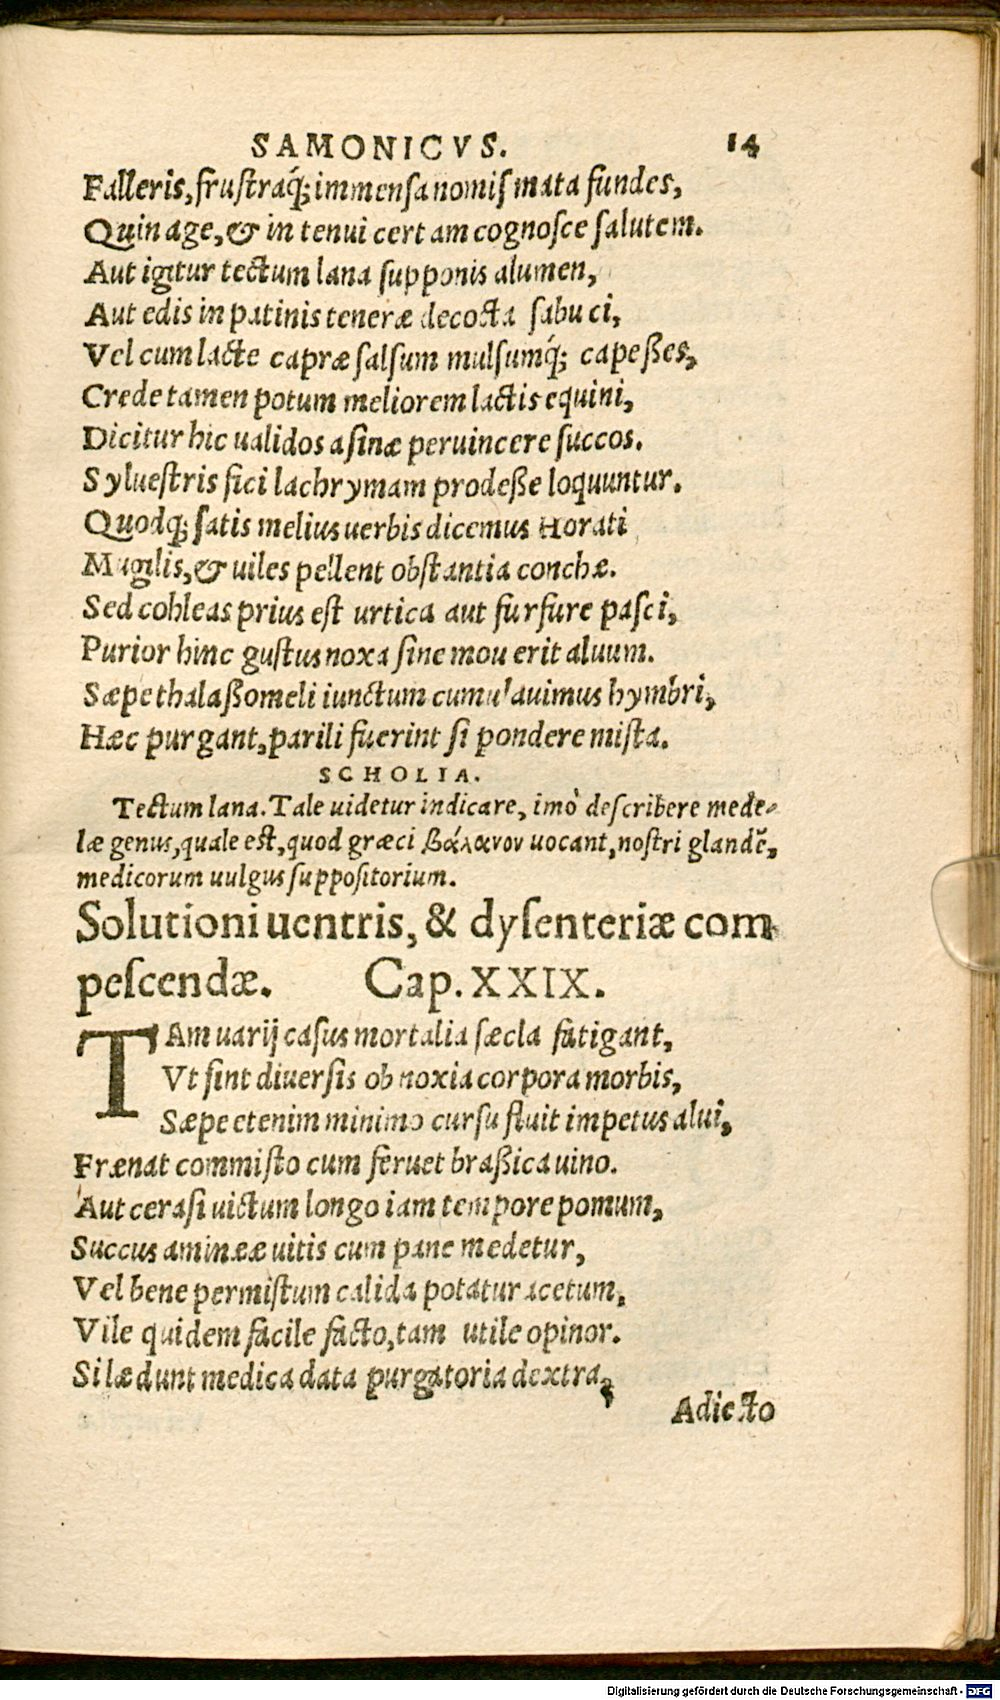 SAMONICVS. 14
Falleris, frustraq́; immensa nomismata fundes,
Quin age, & in tenui certam cognosce salutem.
Aut igitur tectum lana supponis alumen,
Aut edis in patinis teneræ decocta sabuci,
Vel cum lacte capræ salsum mulsumq́; capeßes,
Crede tamen potum meliorem lactis equini,
Dicitur hic ualidos asinæ peruincere succos.
Syluestris fici lachrymam prodeße loquuntur.
Quodq; satis melius uerbis dicemus Horati
Mugilis, & uiles pellent obstantia conchæ.
Sed cohleas prius est urtica aut furfure pasci,
Purior hinc gustus noxa sine mouerit aluum.
Sæpe thalaßomeli iunctum cumulauimus hymbri,
Hæc purgant, parili fuerint si pondere mista.
SCHOLIA.
Tectum lana. Tale uidetur indicare, imò describere mede-
læ genus, quale est, quod græci βάλανον uocant, nostri glandē,
medicorum uulgus suppositorium.
Solutioni uentris, & dysenteriæ com
pescendæ. Cap. XXIX.
TAm uarij casus mortalia sæcla fatigant,
Vt sint diuersis obnoxia corpora morbis,
Sæpe etenim minimo cursu fluit impetus alui,
Frænat commisto cum feruet braßica uino.
Aut cerasi uictum longo iam tempore pomum,
Succus amineæ uitis cum pane medetur,
Vel bene permistum calida potatur acetum,
Vile quidem facile facto, tam utile opinor.
Si lædunt medica data purgatoria dextra,
Adiecto
Digitalisierung gefördert durch die Deutsche Forschungsgemeinschaft - DFG